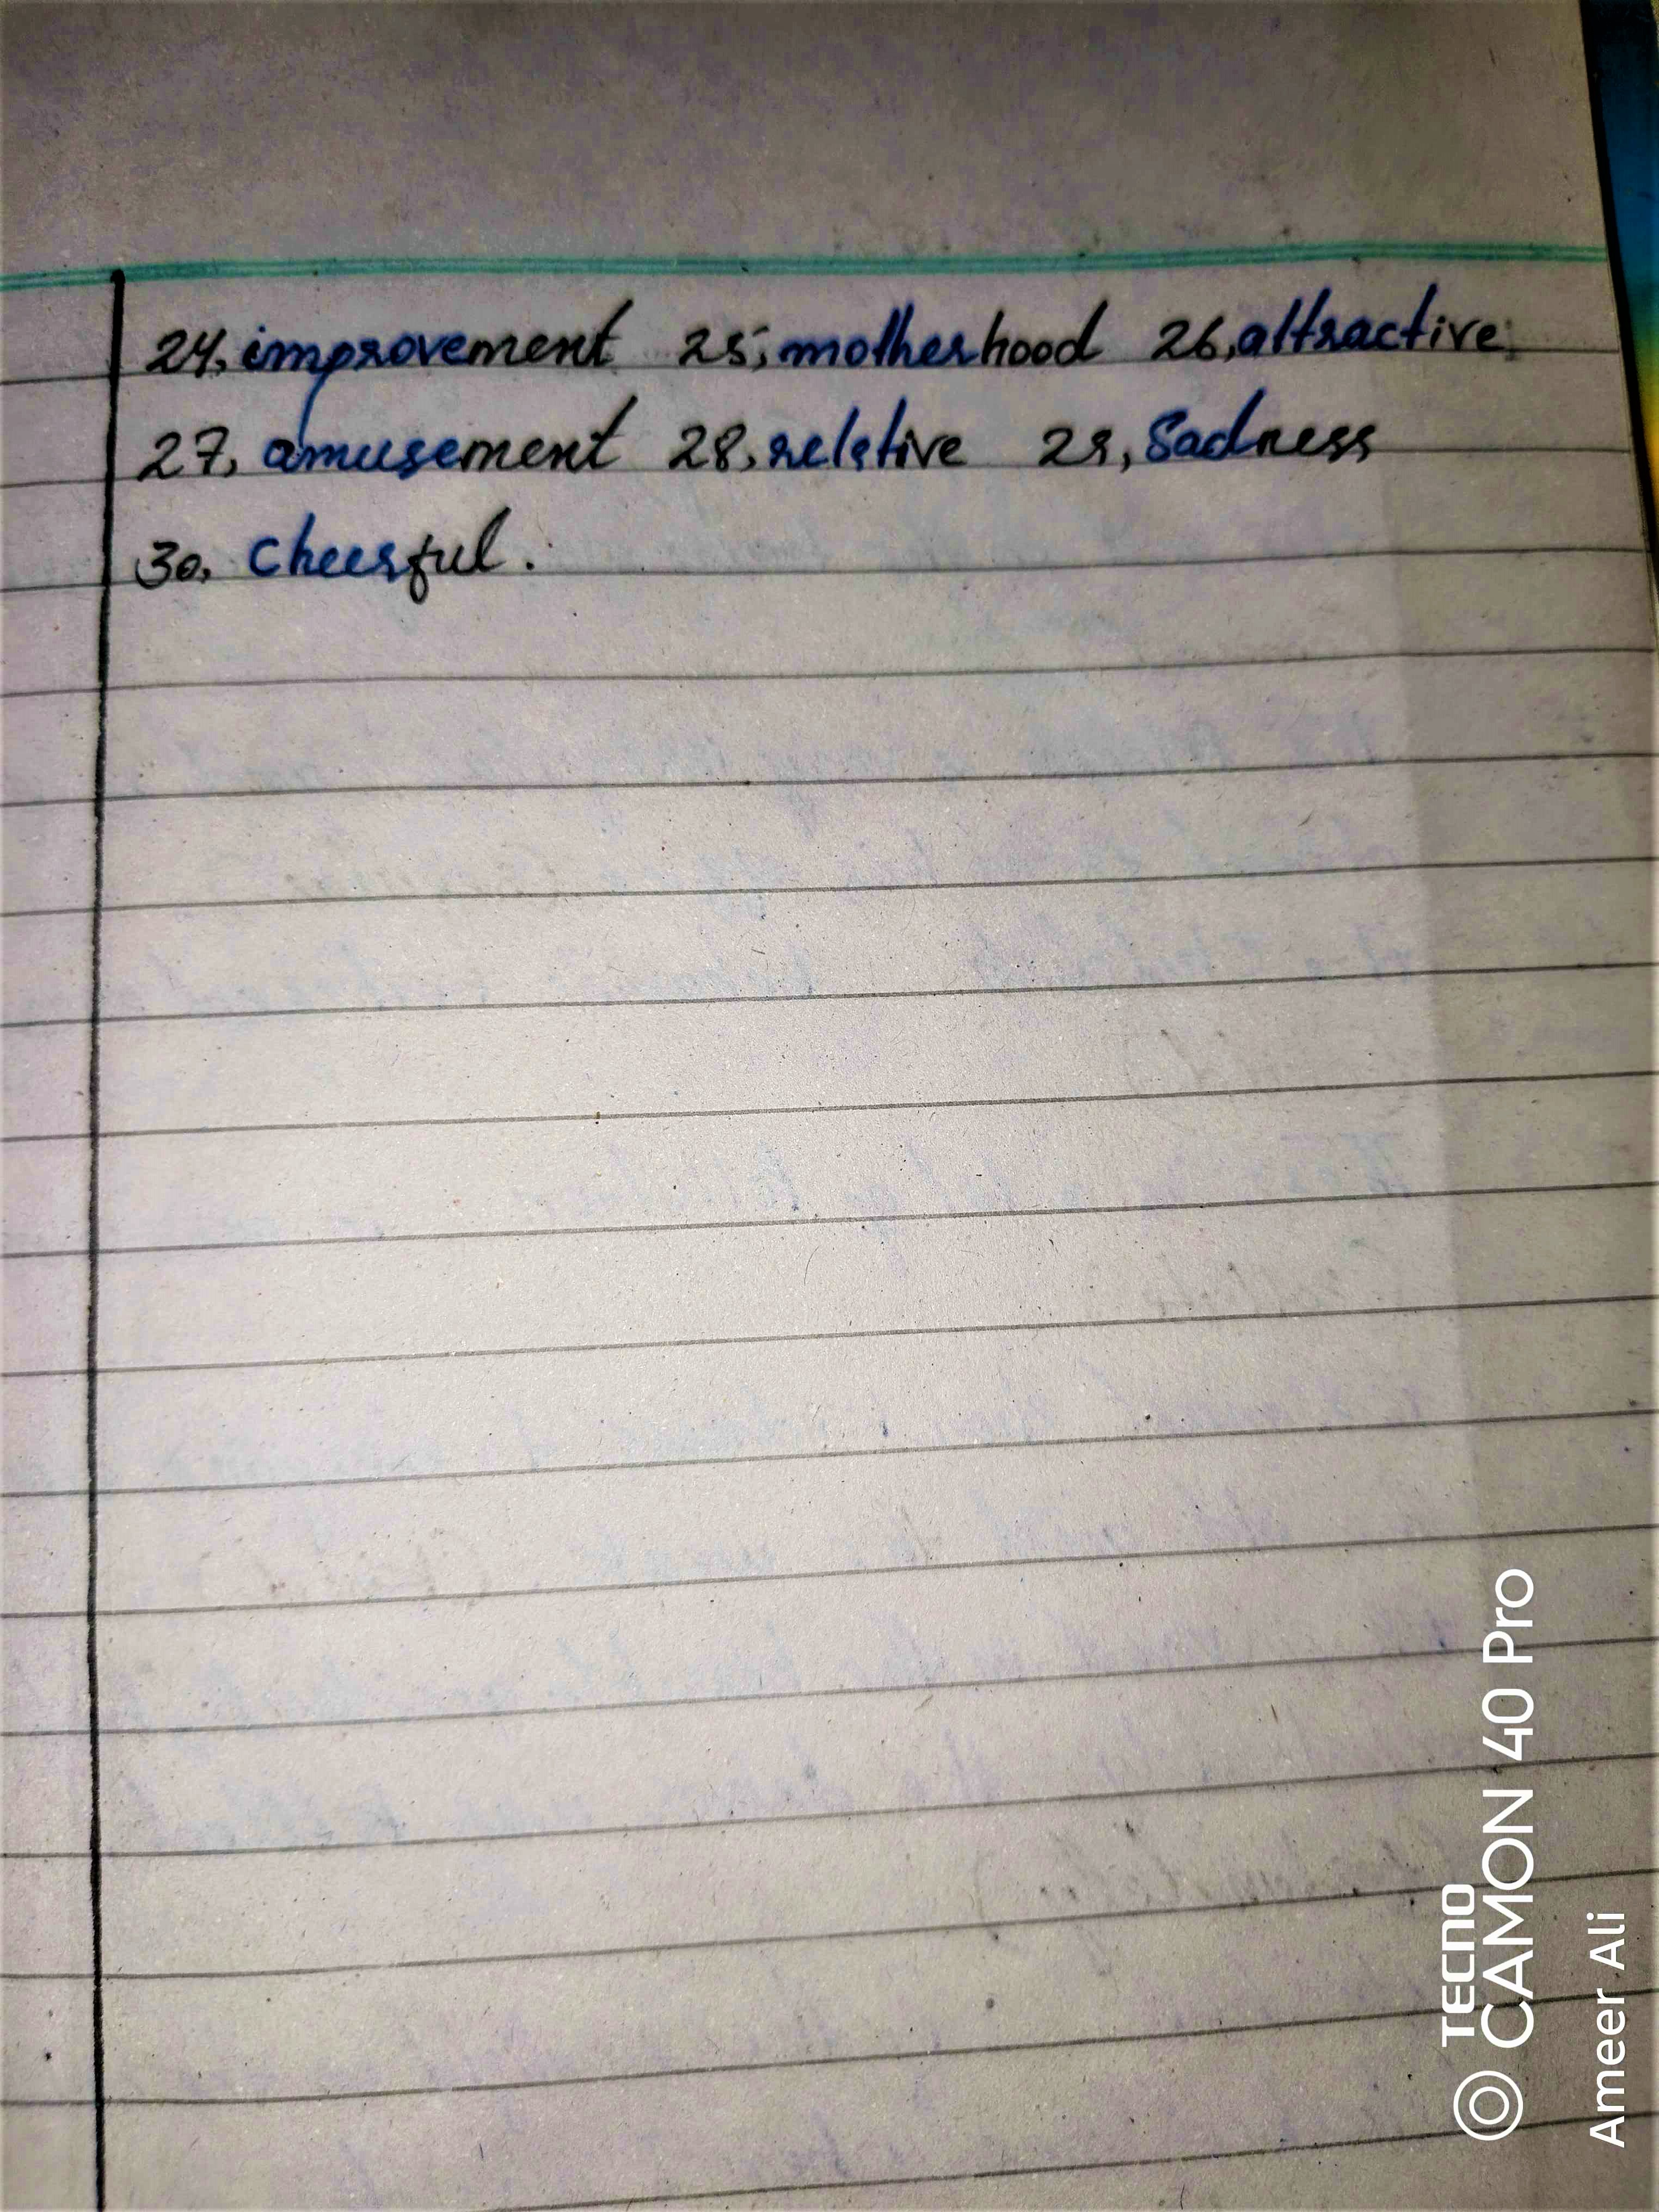 24, improvement 25, motherhood 26, attractive
27, amusement 28, relative 29, Sadness
30, Cheerful.
TECNO
CAMON 40 Pro
Ameer Ali